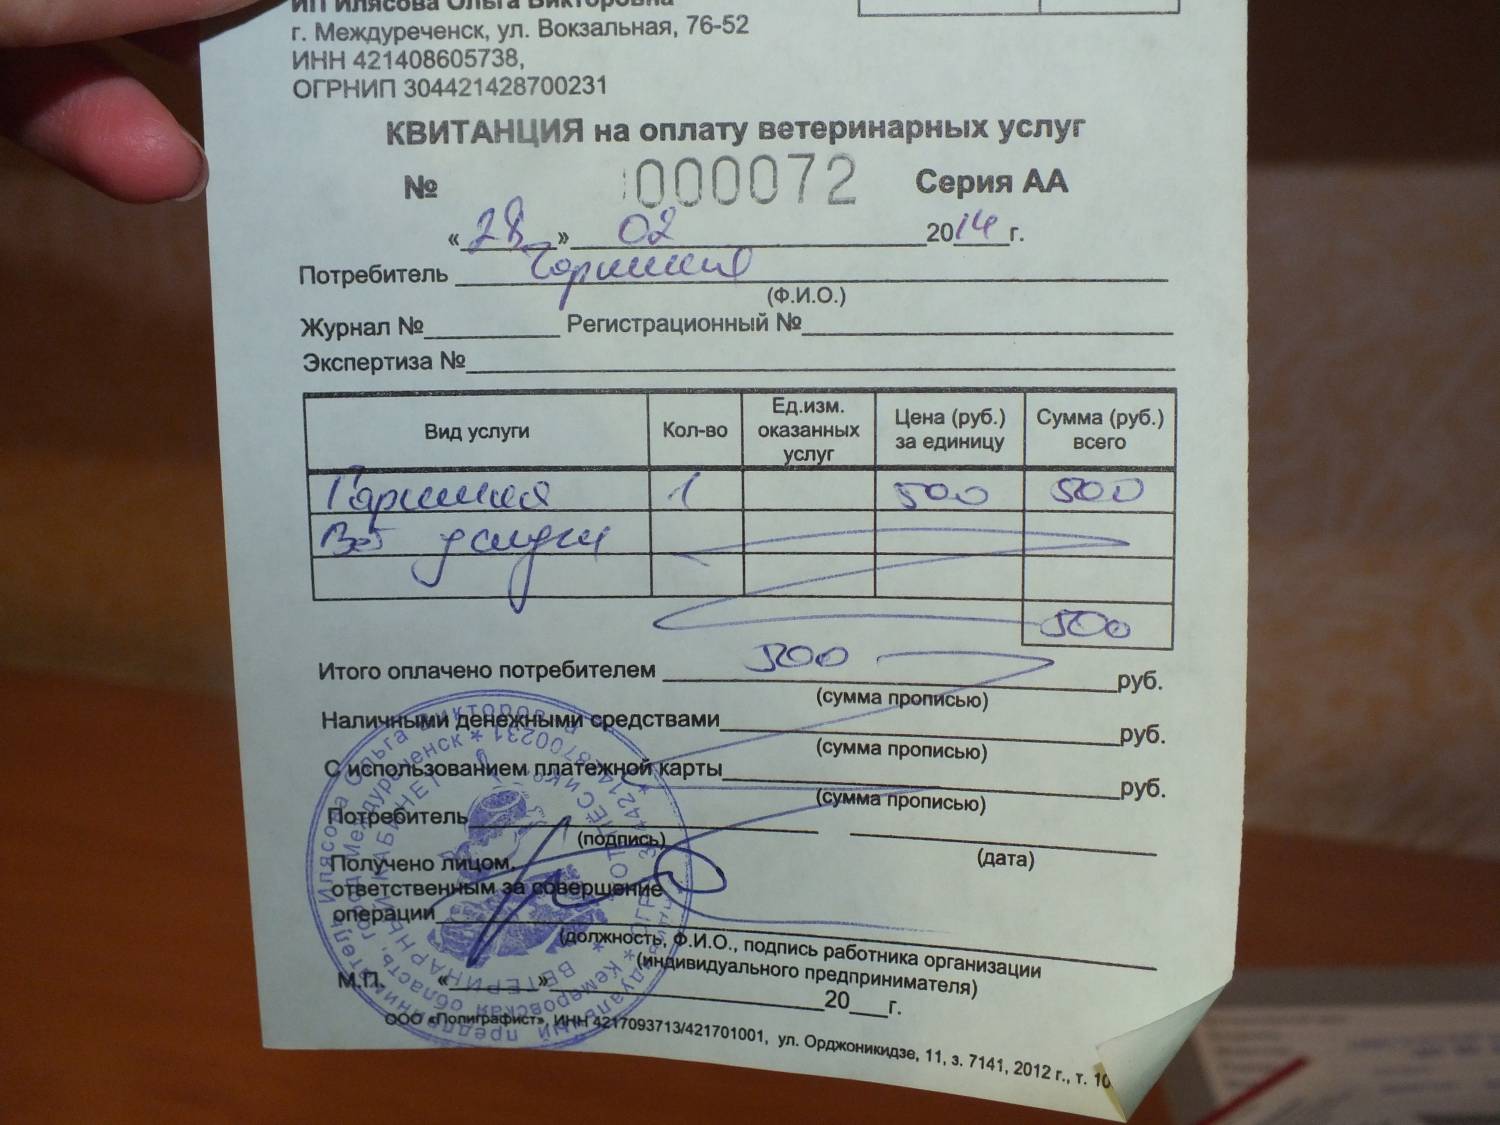 ИП Илясова Ольга Викторовна
г. Междуреченск, ул. Вокзальная, 76-52
ИНН 421408605738,
ОГРНИП 304421428700231
КВИТАНЦИЯ на оплату ветеринарных услуг
№ 000072 Серия АА
«28» 02 2014 г.
Потребитель
(Ф.И.О.)
Журнал № Регистрационный №
Экспертиза №
Вид услуги Кол-во Ед.изм. оказанных услуг Цена (руб.) за единицу Сумма (руб.) всего
1 500 500
Вет услуги
500
Итого оплачено потребителем 500 руб.
(сумма прописью)
Наличными денежными средствами руб.
(сумма прописью)
С использованием платежной карты руб.
(сумма прописью)
Потребитель
(подпись) (дата)
Получено лицом,
ответственным за совершение
операции
(должность, Ф.И.О., подпись работника организации
(индивидуального предпринимателя)
М.П. « » 20 г.
ООО «Полиграфист», ИНН 4217093713/421701001, ул. Орджоникидзе, 11, з. 7141, 2012 г., т. 10